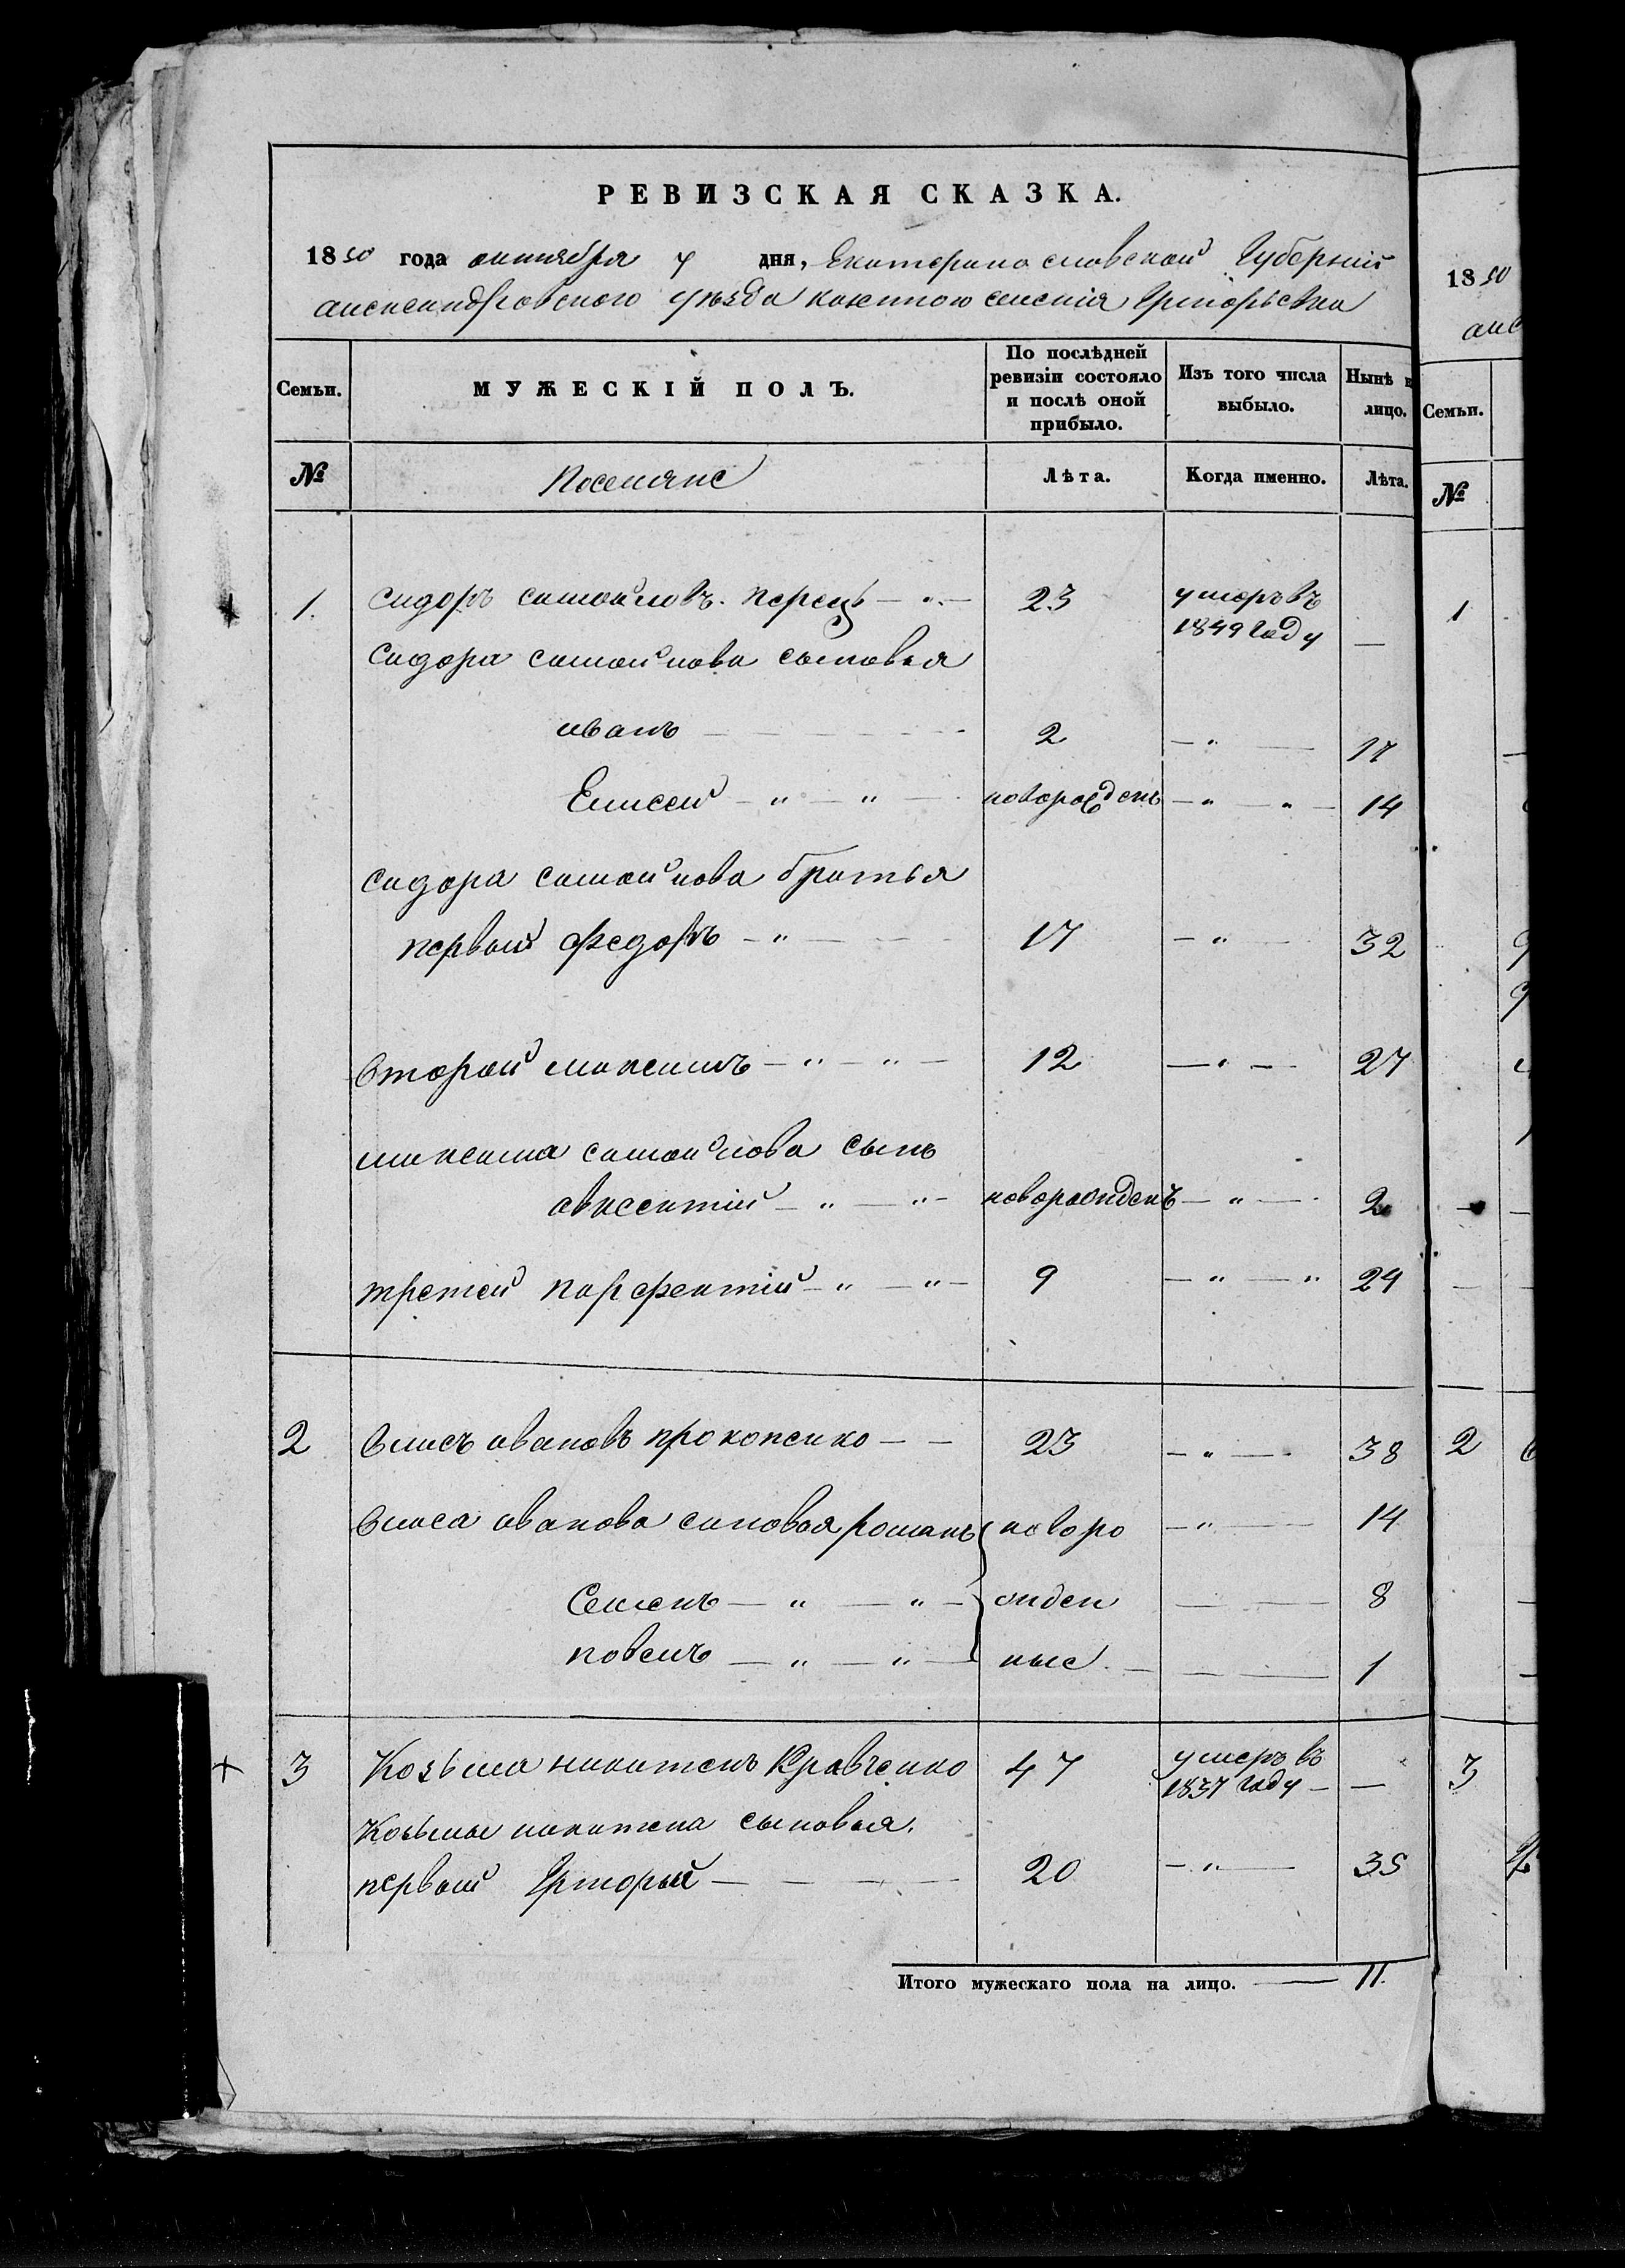 РЕВИЗСКАЯ СКАЗКА.
1850 года октября 7 дня, Екатеринославской Губерніи
александровского уѣзда казенного селенія Григорьевки
Семьи.
МУЖЕСКІЙ ПОЛЪ.
По послѣдней ревизіи состояло и послѣ оной прибыло.
Изъ того числа выбыло.
Нынѣ н лицо.
№
Поселяне
Лѣта.
Когда именно.
Лѣта.
1. сидоръ самойловъ. перецъ — 23 умеръ въ 1849 году —
сидора самойлова сыновья
иванъ 2 — " — 17
Елисей — " — " — новорожденъ — " — " — 14
сидора самойлова братья
первый федоръ — " — 17 — " — 32
второй максимъ — " — " — 12 — " — 27
максима самойлова сынъ
авксентій — " — " — новорожденъ — " — 2
третей парфентій — " — " — 9 — " — " 24
2 власъ ивановъ прокопенко — — 23 — " — 38
власа иванова сыновья романъ новоро — " — 14
Семенъ — " — " — жден — — 8
павелъ — " — " — ные — — 1
3 Козьма никитенъ Кравченко 47 умеръ въ 1837 году — —
Козьмы никитена сыновья.
первый Григорый — 20 — " — 35
Итого мужескаго пола на лицо. — 11.
1850
Семьи.
№
1
2
3